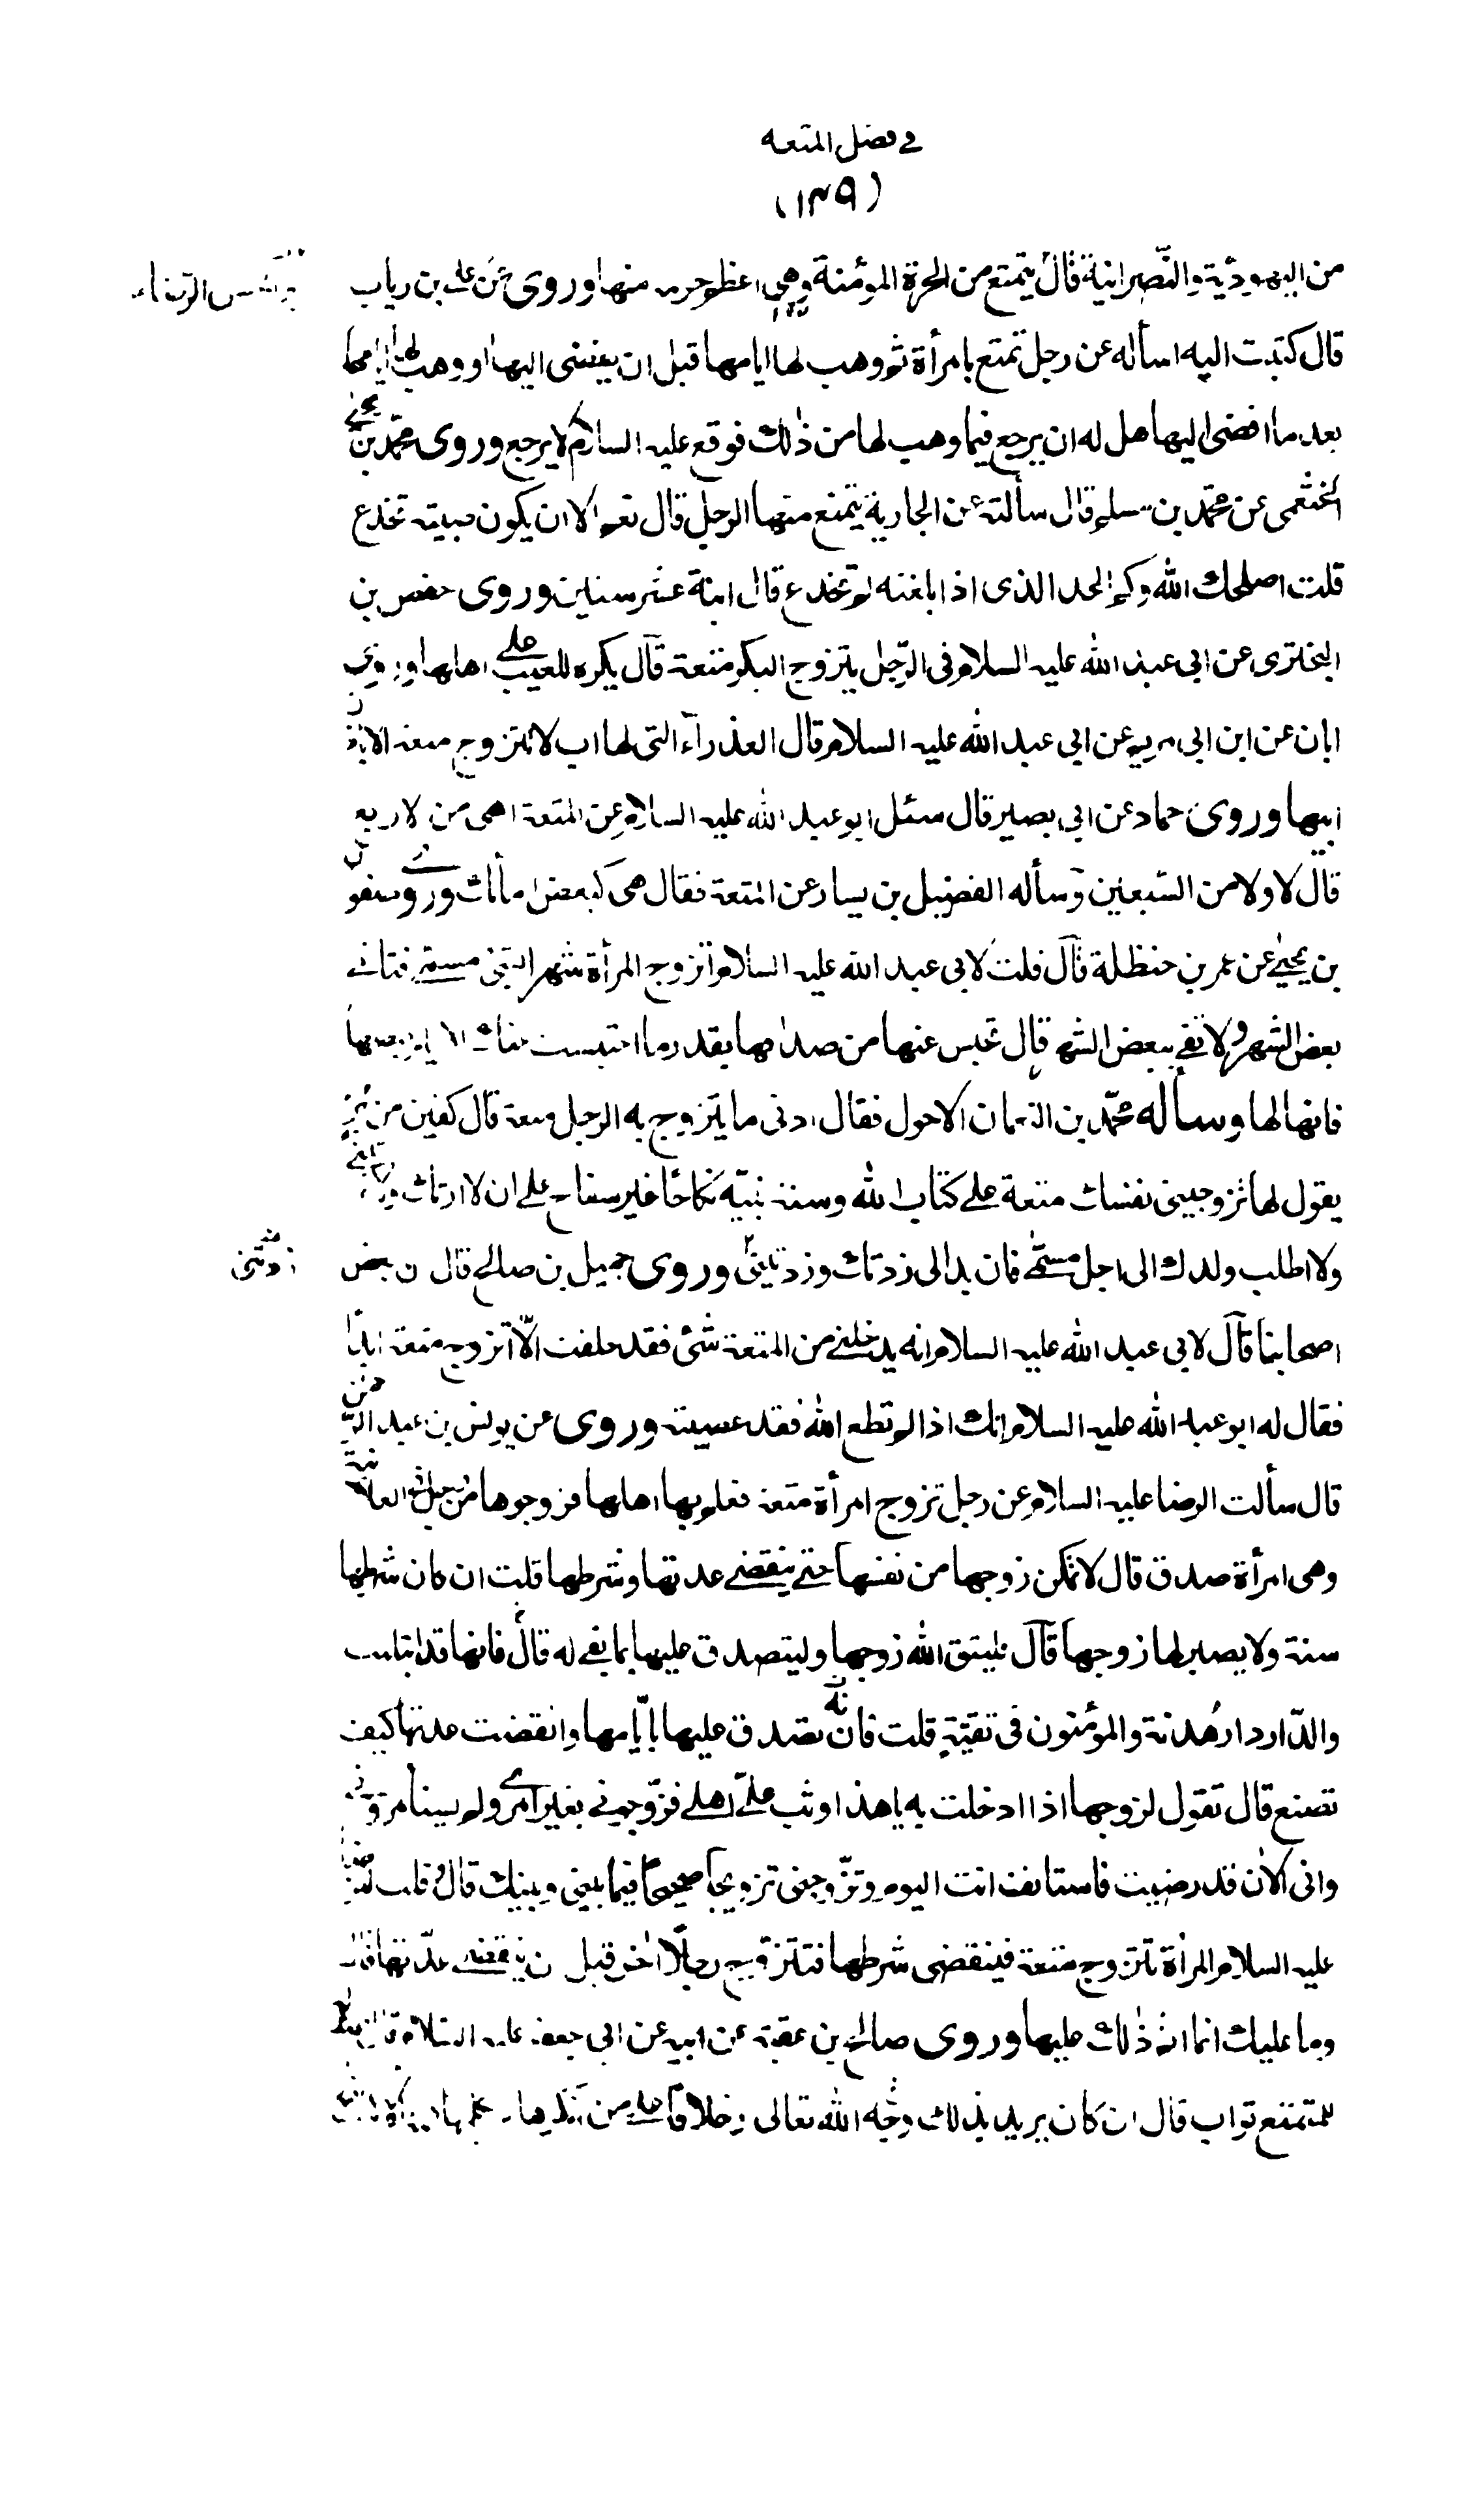 في فضل المتعه
(١٣٩)
من اليهودية والنصرانية قال يتمتع من الحرة المؤمنة وهي اعظم حرمة منها وروى عن علي بن رياب
قال كتبت اليه اسأله عن رجل تمتع بامرأة ثم وهب لها ايامها قبل ان يفضى اليها او وهب لها ايامها
بعد ما افضى اليها هل له ان يرجع فيما وهب لها من ذلك فوقع عليه السلام لا يرجع وروى محمد بن يحيى
الخثعمى عن محمد بن مسلم قال سألته عن الجارية يتمتع منها الرجل قال نعم الا ان يكون صبية تخدع
قلت اصلحك الله وكم الحد الذى اذا بلغته لم تخدع قال ابنة عشر سنين وروى حفص بن
البخترى عن ابى عبد الله عليه السلام فى الرجل يتزوج البكر متعة قال يكره للعيب على اهلها وروى
ابان عن ابن ابى مريم عن ابى عبد الله عليه السلام قال العذرآء التى لها اب لا تتزوج متعة الا باذن
ابيها وروى حماد عن ابى بصير قال سئل ابو عبد الله عليه السلام عن المتعة اهى من الاربع
قال لا ولا من السبعين وسأله الفضيل بن يسار عن المتعة فقال هى كبعض امائك وروى صفوان
بن يحيى عن عمر بن حنظلة قال قلت لابى عبد الله عليه السلام اتزوج المرأة شهرا فتأتى
بعض الشهر ولا تفى ببعض الشهر قال تحبس عنها من صداقها بقدر ما احتبست عنك الا ايام حيضها
فانها لها وسأله محمد بن النعمان الاحول فقال ادنى ما يتزوج به الرجل متعة قال كفين من بر
يقول لها زوجينى نفسك متعة على كتاب الله وسنة نبيه نكاحا غير سفاح على ان لا ارثك ولا ترثينى
ولا اطلب ولدك الى اجل مسمى فان بدا لى زدتك وزدتينى وروى جميل بن صالح قال ان بعض
اصحابنا قال لابى عبد الله عليه السلام انه يدخلنى من المتعة شئ فقد حلفت الا اتزوج متعة ابدا
فقال له ابو عبد الله عليه السلام انك اذا لم تطع الله فقد عصيته وروى عن يونس بن عبد الرحمن
قال سألت الرضا عليه السلام عن رجل تزوج امرأة متعة فعلم بها اهلها فزوجوها من رجل فى العلانية
وهى امرأة صدق قال لا تمكن زوجها من نفسها حتى ينقضى عدتها وشرطها قلت ان كان شرطها
سنة ولا يصبر لها زوجها قال فليتق الله زوجها وليتصدق عليها بما بقى له قال فانها قد ابتليت
والدار دار هدنة والمؤمنون فى تقية قلت فانه تصدق عليها بايامها وانقضت عدتها كيف
تصنع قال تقول لزوجها اذا ادخلت به يا هذا وثب على اهلى فزوجونى بغير امرى ولم يستأمرونى
وانى الان قد رضيت فاستأنف انت اليوم وتزوجنى تزويجا صحيحا فيما بينى وبينك قال قلت للرضا
عليه السلام المرأة تتزوج متعة فينقضى شرطها فتتزوج رجلا اخر قبل ان ينقضى عدتها قال
وما عليك انما اثم ذلك عليها وروى صالح بن عقبة عن ابيه عن ابى جعفر عليه السلام قال قلت
للمتمتع ثواب قال ان كان يريد بذلك وجه الله تعالى وخلافا على من انكرها لم يكلمها